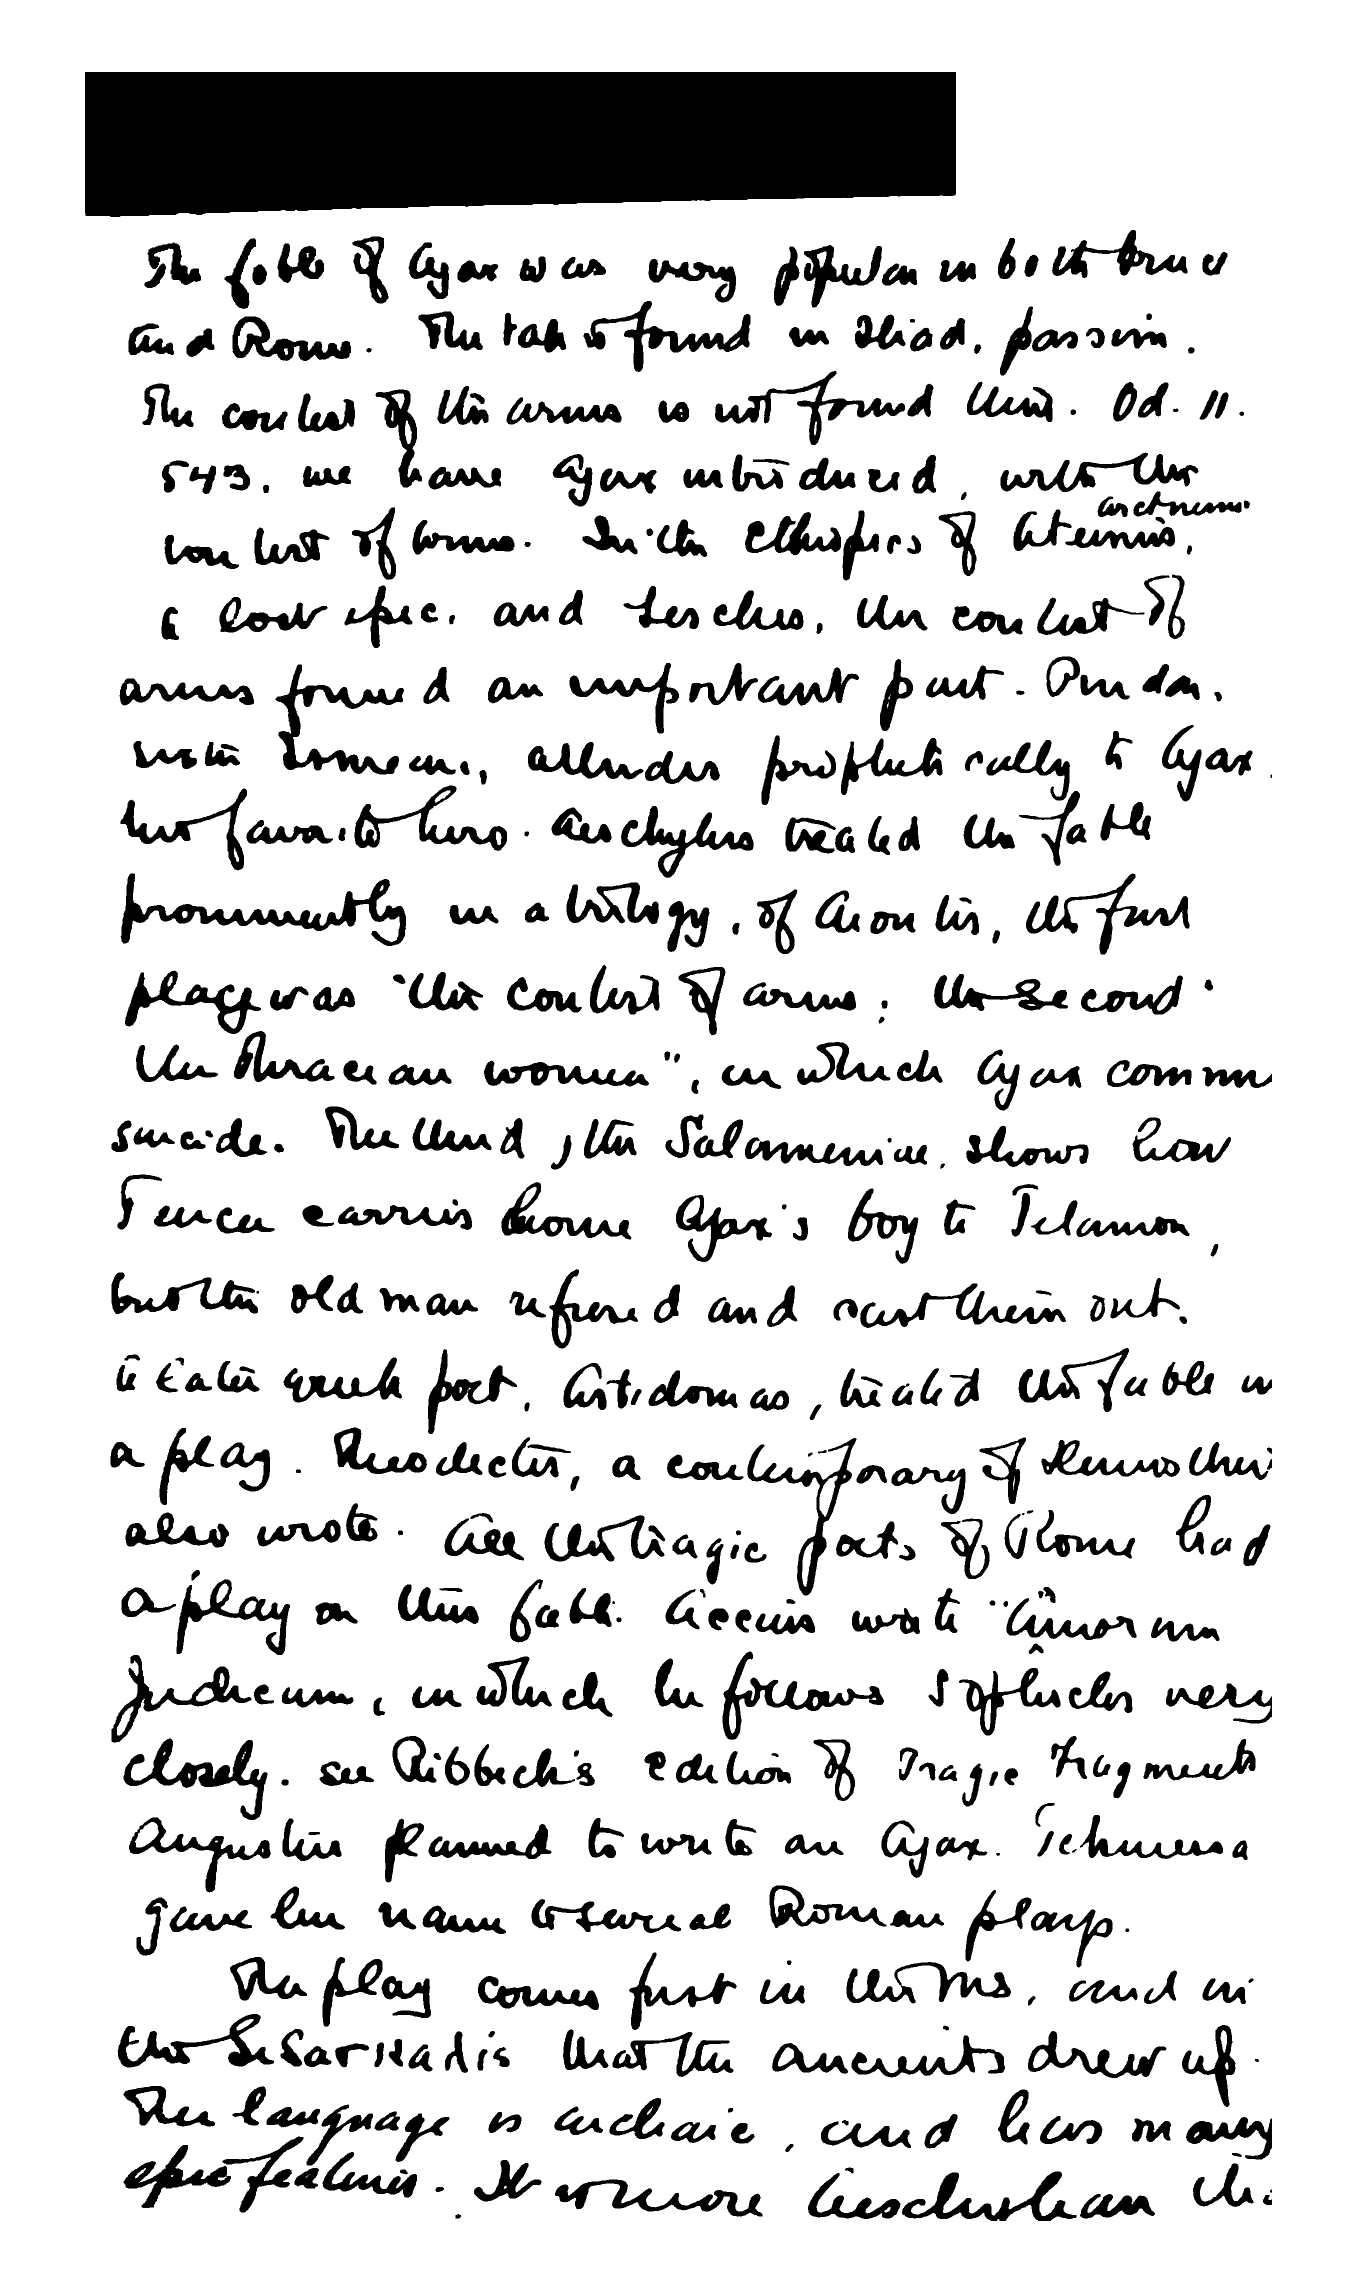 The fable of Ajax was very popular in both Greece
and Rome. The tale is found in Iliad, passim.
The contest of the arms is not found there. Od. 11.
543. we have Ajax introduced, with the
contest of arms. In the Ethiopics of
a lost epic, and Lesches, the contest of
arms formed an important part. Pindar,
alludes prophetically to Ajax
his favorite hero. Aeschylus treated the fable
prominently in a trilogy, of the first
play was "the contest of arms; the second "
the Thracian women", in which Ajax comm
suicide. The third, the Salaminiae, shows how
Teucer carries home Ajax's boy to Telamon,
but the old man refused and cast them out.
later greek poet, Astidamas, treated the fable in
a play. Theodectes, a contemporary of Demosthen
also wrote. All the tragic poets of Rome had
a play on this fable. Accius wrote "Armorum
Judicium, in which he follows Sophocles very
closely. see Ribbeck's edition of Tragic Fragments
Augustus planned to write an Ajax. Tekmessa
gave her name to several Roman plays.
The play comes first in the Mss, and in
the that the ancients drew up.
The language is archaic, and has many
epic features. It is more Aeschulean tha